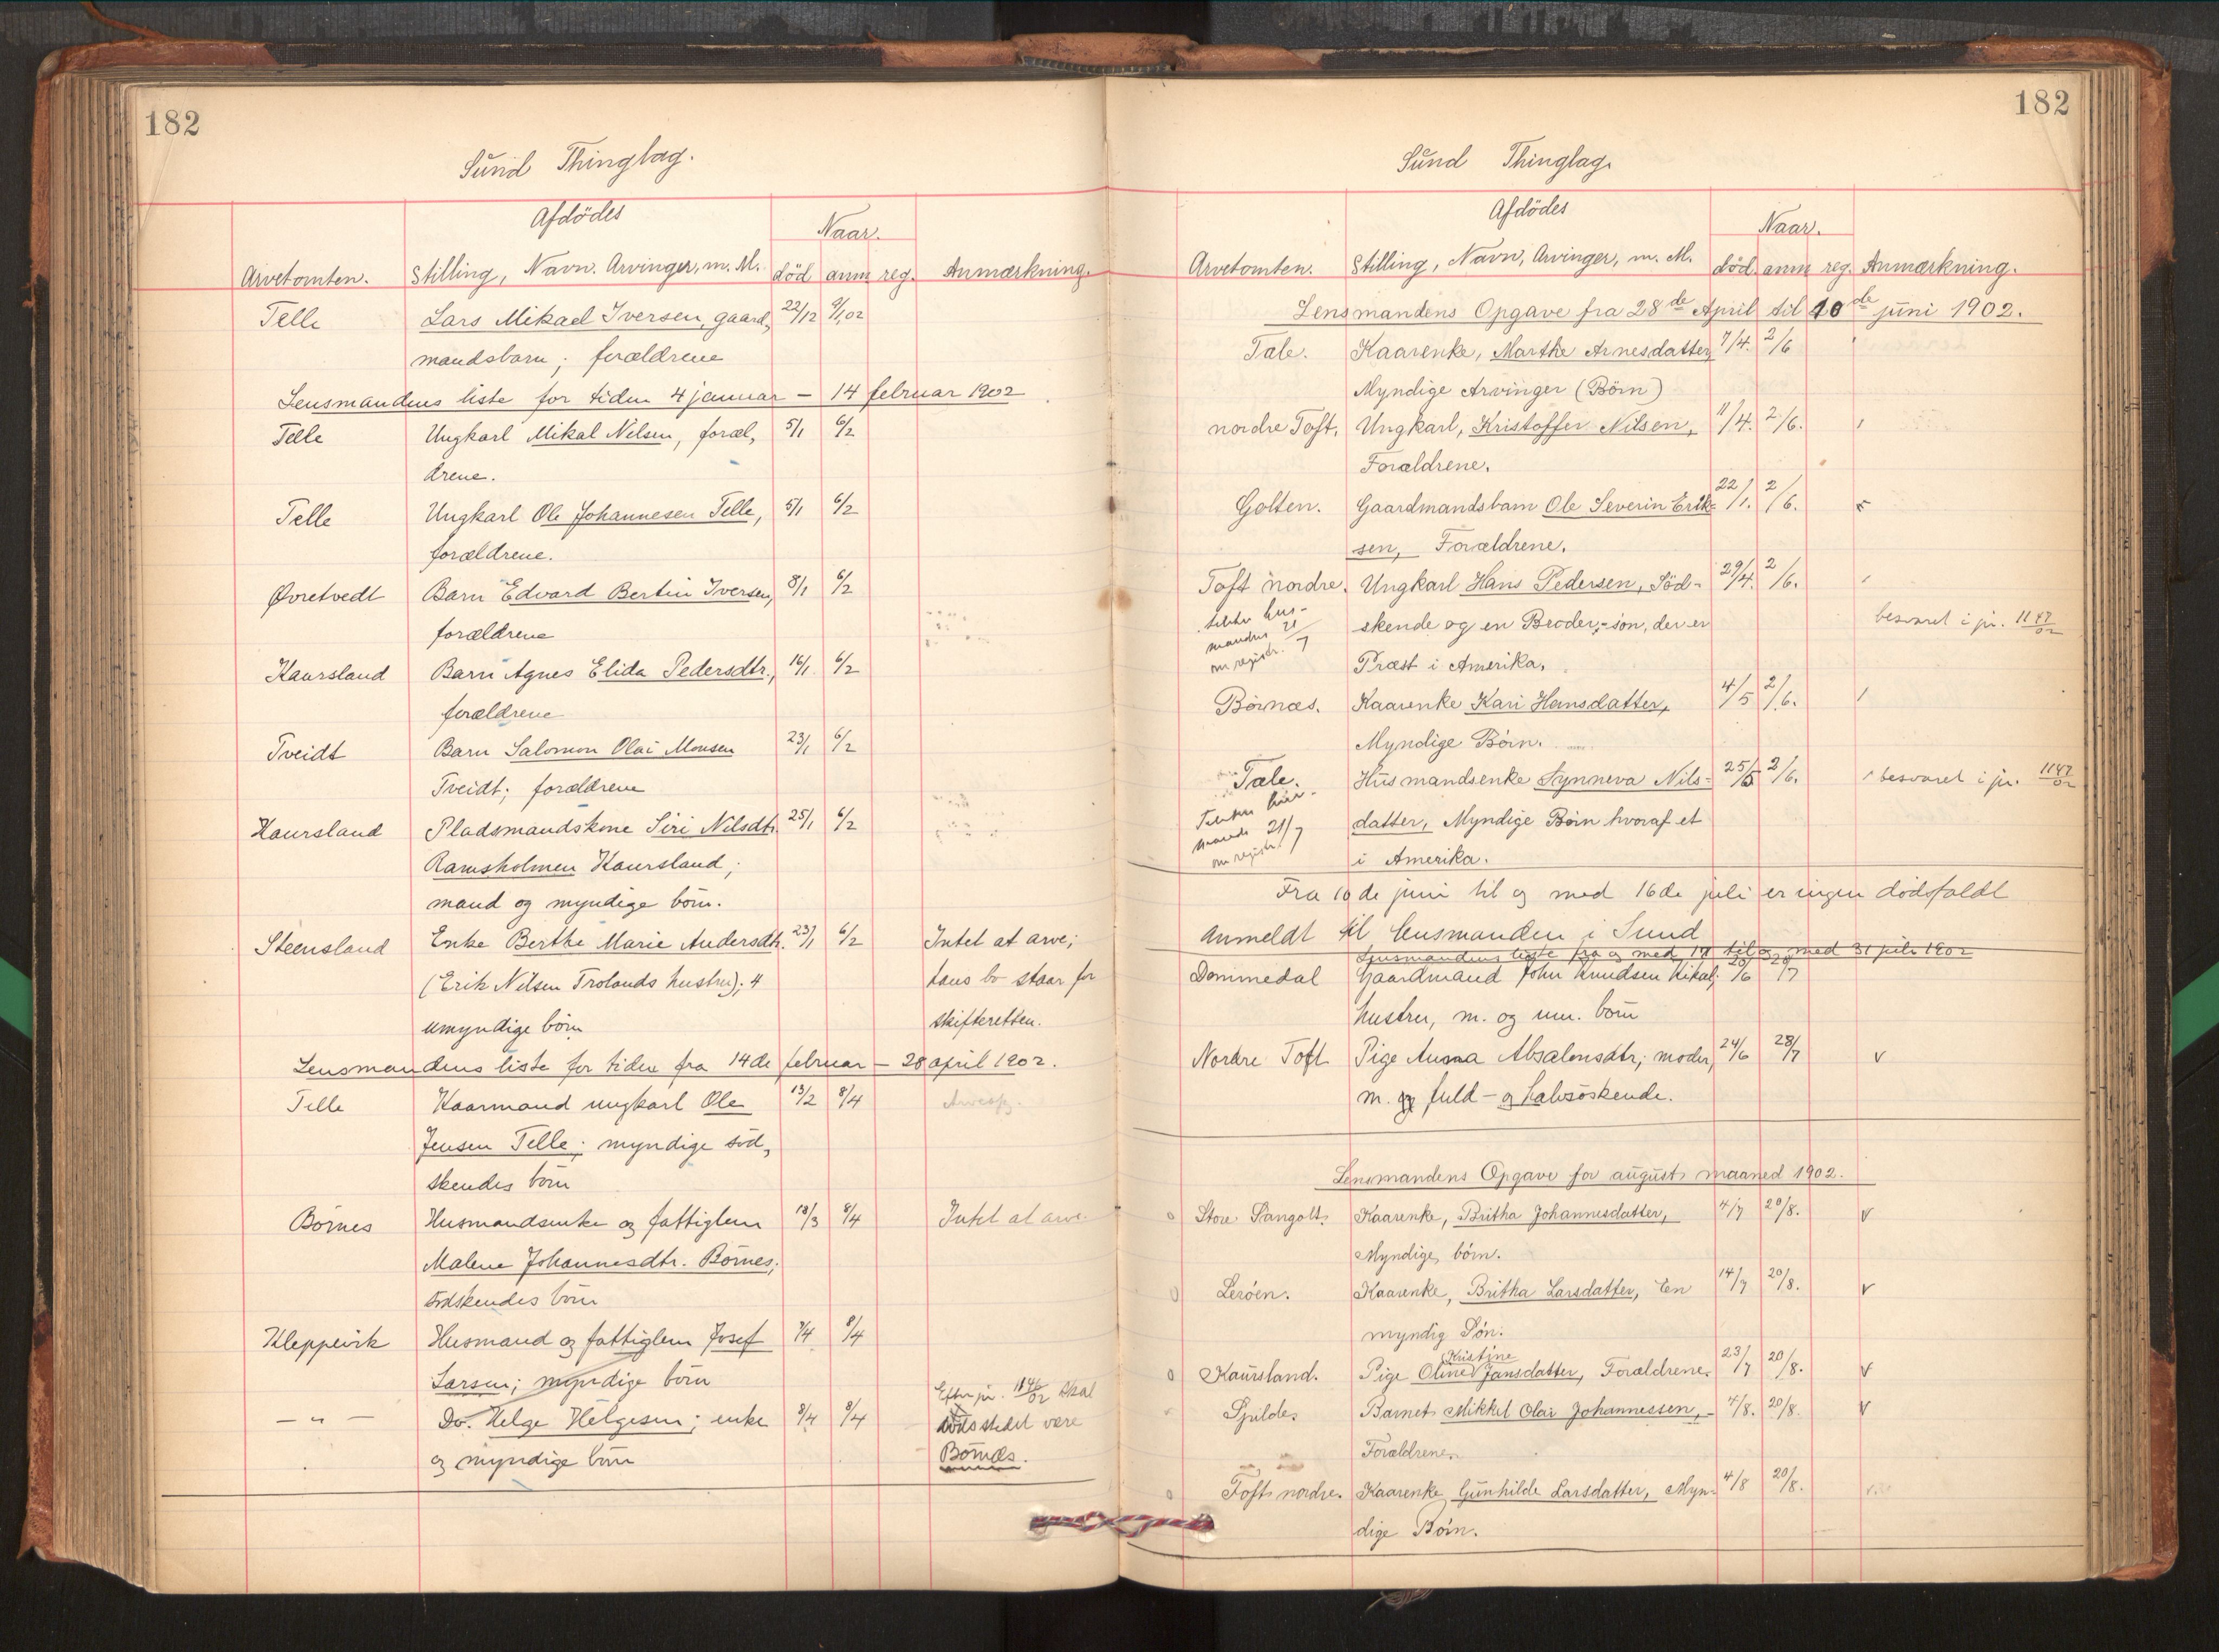 182
Sund Thinglag.
Afdödes
Naar.
Arvetomten. Stilling, Navn. Arvinger, m. M. död anm reg. Anmærkning.
Telle Lars Mikael Iversen, gaard, 22/12 9/1 02
mandsbarn; forældrene
Lensmandens liste for tiden 4 januar – 14 februar 1902
Telle Ungkarl Mikal Nelsen, foræl, 5/1 6/2
drene.
Telle Ungkarl Ole Johannesen Telle, 5/1 6/2
forældrene.
Øvretvedt Barn Edvard Bertin Iversen, 8/1 6/2
forældrene
Kaursland Barn Agnes Elida Pedersdtr., 16/1 6/2
forældrene
Tveidt Barn Salomon Olai Monsen 23/1 6/2
Tveidt; forældrene
Kaursland Pladsmandskone Siri Nilsdtr. 25/1 6/2
Ramsholmen Kaursland;
mand og myndige börn.
Steensland Enke Berthe Marie Andersdtr. 23/1 6/2 Intet at arve;
(Erik Nilsen Trolands hustru); 4 hans bo staar for
umyndige börn skifteretten.
Lensmandens liste for tiden fra 14de februar – 28 april 1902.
Telle Kaarmand ungkarl Ole 13/2 8/4
Jensen Telle; myndige söd,
skendes börn
Börnes Husmandsenke og fattiglem 18/3 8/4 Intet at arve.
Malene Johannesdtr. Börnes;
södskendes börn
Kleppevik Husmand og fattiglem Josef 7/4 8/4
Larsen; myndige börn
– " – Do. Helge Helgesen; enke 8/4 8/4 Efter jr. 1146/02 skal
og myndige börn dödsstedet være
Börnæs.
182
Sund Thinglag.
Afdödes
Naar.
Arvetomten. Stilling, Navn, Arvinger, m. M. död. anm reg. Anmærkning.
Lensmandens Opgave fra 28de April til 10de juni 1902.
Tæle. Kaarenke, Marthe Arnesdatter, 7/4. 2/6
Myndige Arvinger (Börn)
nordre Toft. Ungkarl, Kristoffer Nilsen, 11/4. 2/6.
Forældrene.
Golten. Gaardmandsbarn Ole Severin Erik- 22/1. 2/6.
sen, Forældrene.
Toft nordre. Ungkarl Hans Pedersen, Söd- 29/4. 2/6.
skende og en Broder-sön, der er besvaret i jr. 1147/02
mandens 21/7
om registr.
Præst i Amerika.
Börnæs. Kaarenke Kari Hansdatter, 4/5 2/6.
Myndige Börn.
Tæle. Husmandsenke Synneva Nils- 25/5 2/6. besvaret i jr. 1147/02
datter, Myndige Börn hvoraf et
21/7
om registr.
i Amerika.
Fra 10de juni til og med 16de juli er ingen dödsfaldt
anmeldt til lensmanden i Sund
Lensmandens liste fra og med 17 til og med 31 juli 1902
Dommedal Gaardmand John Knudsen 20/6 29/7
hustru, m. og um. börn
Nordre Toft Pige Anna Absalonsdtr; moder, 24/6 28/7 v
m. fuld- og halvsöskende.
Lensmandens Opgave for august maaned 1902.
Store Sangolt. Kaarenke, Britha Johannesdatter, 4/7 20/8. v
Myndige börn.
Leröen. Kaarenke, Britha Larsdatter, En 14/7 20/8. v
myndig Sön.
Kristine
Kaursland. Pige Oline Jansdatter, Forældrene. 23/7 20/8. v
Spilde. Barnet Mikkel Olai Johannessen, 4/8. 20/8. v
Forældrene.
Toft nordre. Kaarenke Gunhilde Larsdatter, Myn- 4/8 20/8. v.
dige Börn.